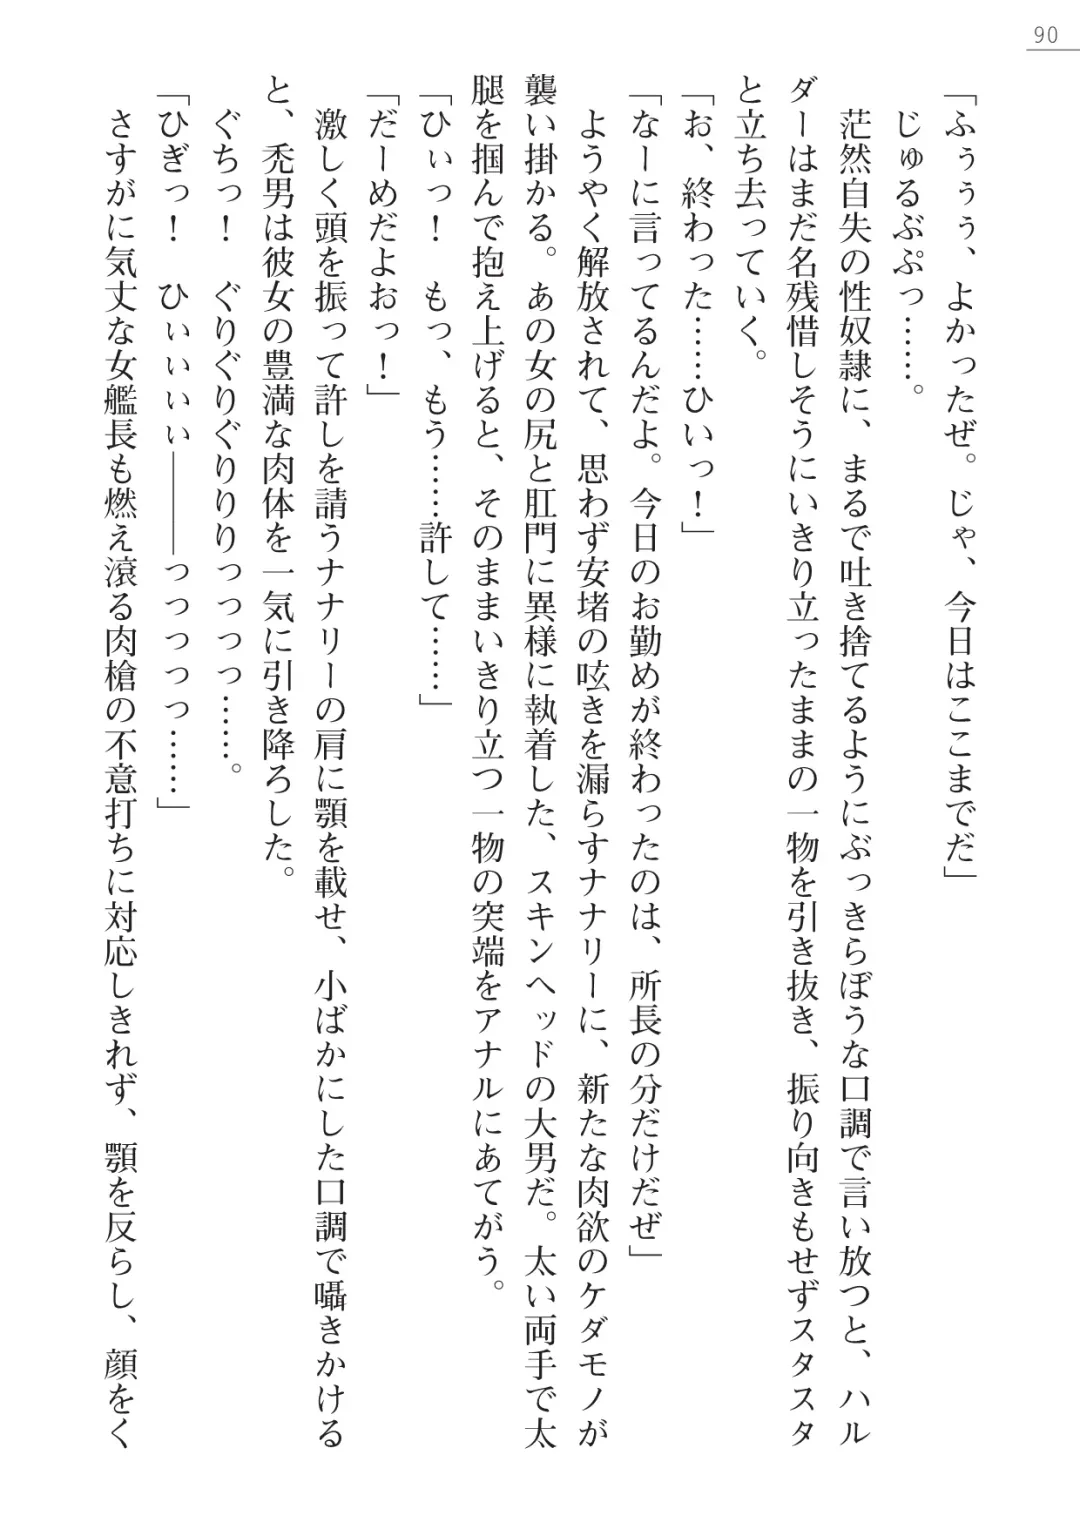 90
「ふぅぅぅ、よかったぜ。じゃ、今日はここまでだ」
じゅるぶぷっ……。
茫然自失の性奴隷に、まるで吐き捨てるようにぶっきらぼうな口調で言い放つと、ハル
ダーはまだ名残惜しそうにいきり立ったままの一物を引き抜き、振り向きもせずスタスタ
と立ち去っていく。
「お、終わった……ひいっ！」
「なーに言ってるんだよ。今日のお勤めが終わったのは、所長の分だけだぜ」
ようやく解放されて、思わず安堵の呟きを漏らすナナリーに、新たな肉欲のケダモノが
襲い掛かる。あの女の尻と肛門に異様に執着した、スキンヘッドの大男だ。太い両手で太
腿を掴んで抱え上げると、そのままいきり立つ一物の突端をアナルにあてがう。
「ひぃっ！　もっ、もう……許して……」
「だーめだよおっ！」
激しく頭を振って許しを請うナナリーの肩に顎を載せ、小ばかにした口調で囁きかける
と、禿男は彼女の豊満な肉体を一気に引き降ろした。
ぐちっ！　ぐりぐりぐりりりっっっっ……。
「ひぎっ！　ひぃぃぃぃ———っっっっっ……」
さすがに気丈な女艦長も燃え滾る肉槍の不意打ちに対応しきれず、顎を反らし、顔をく